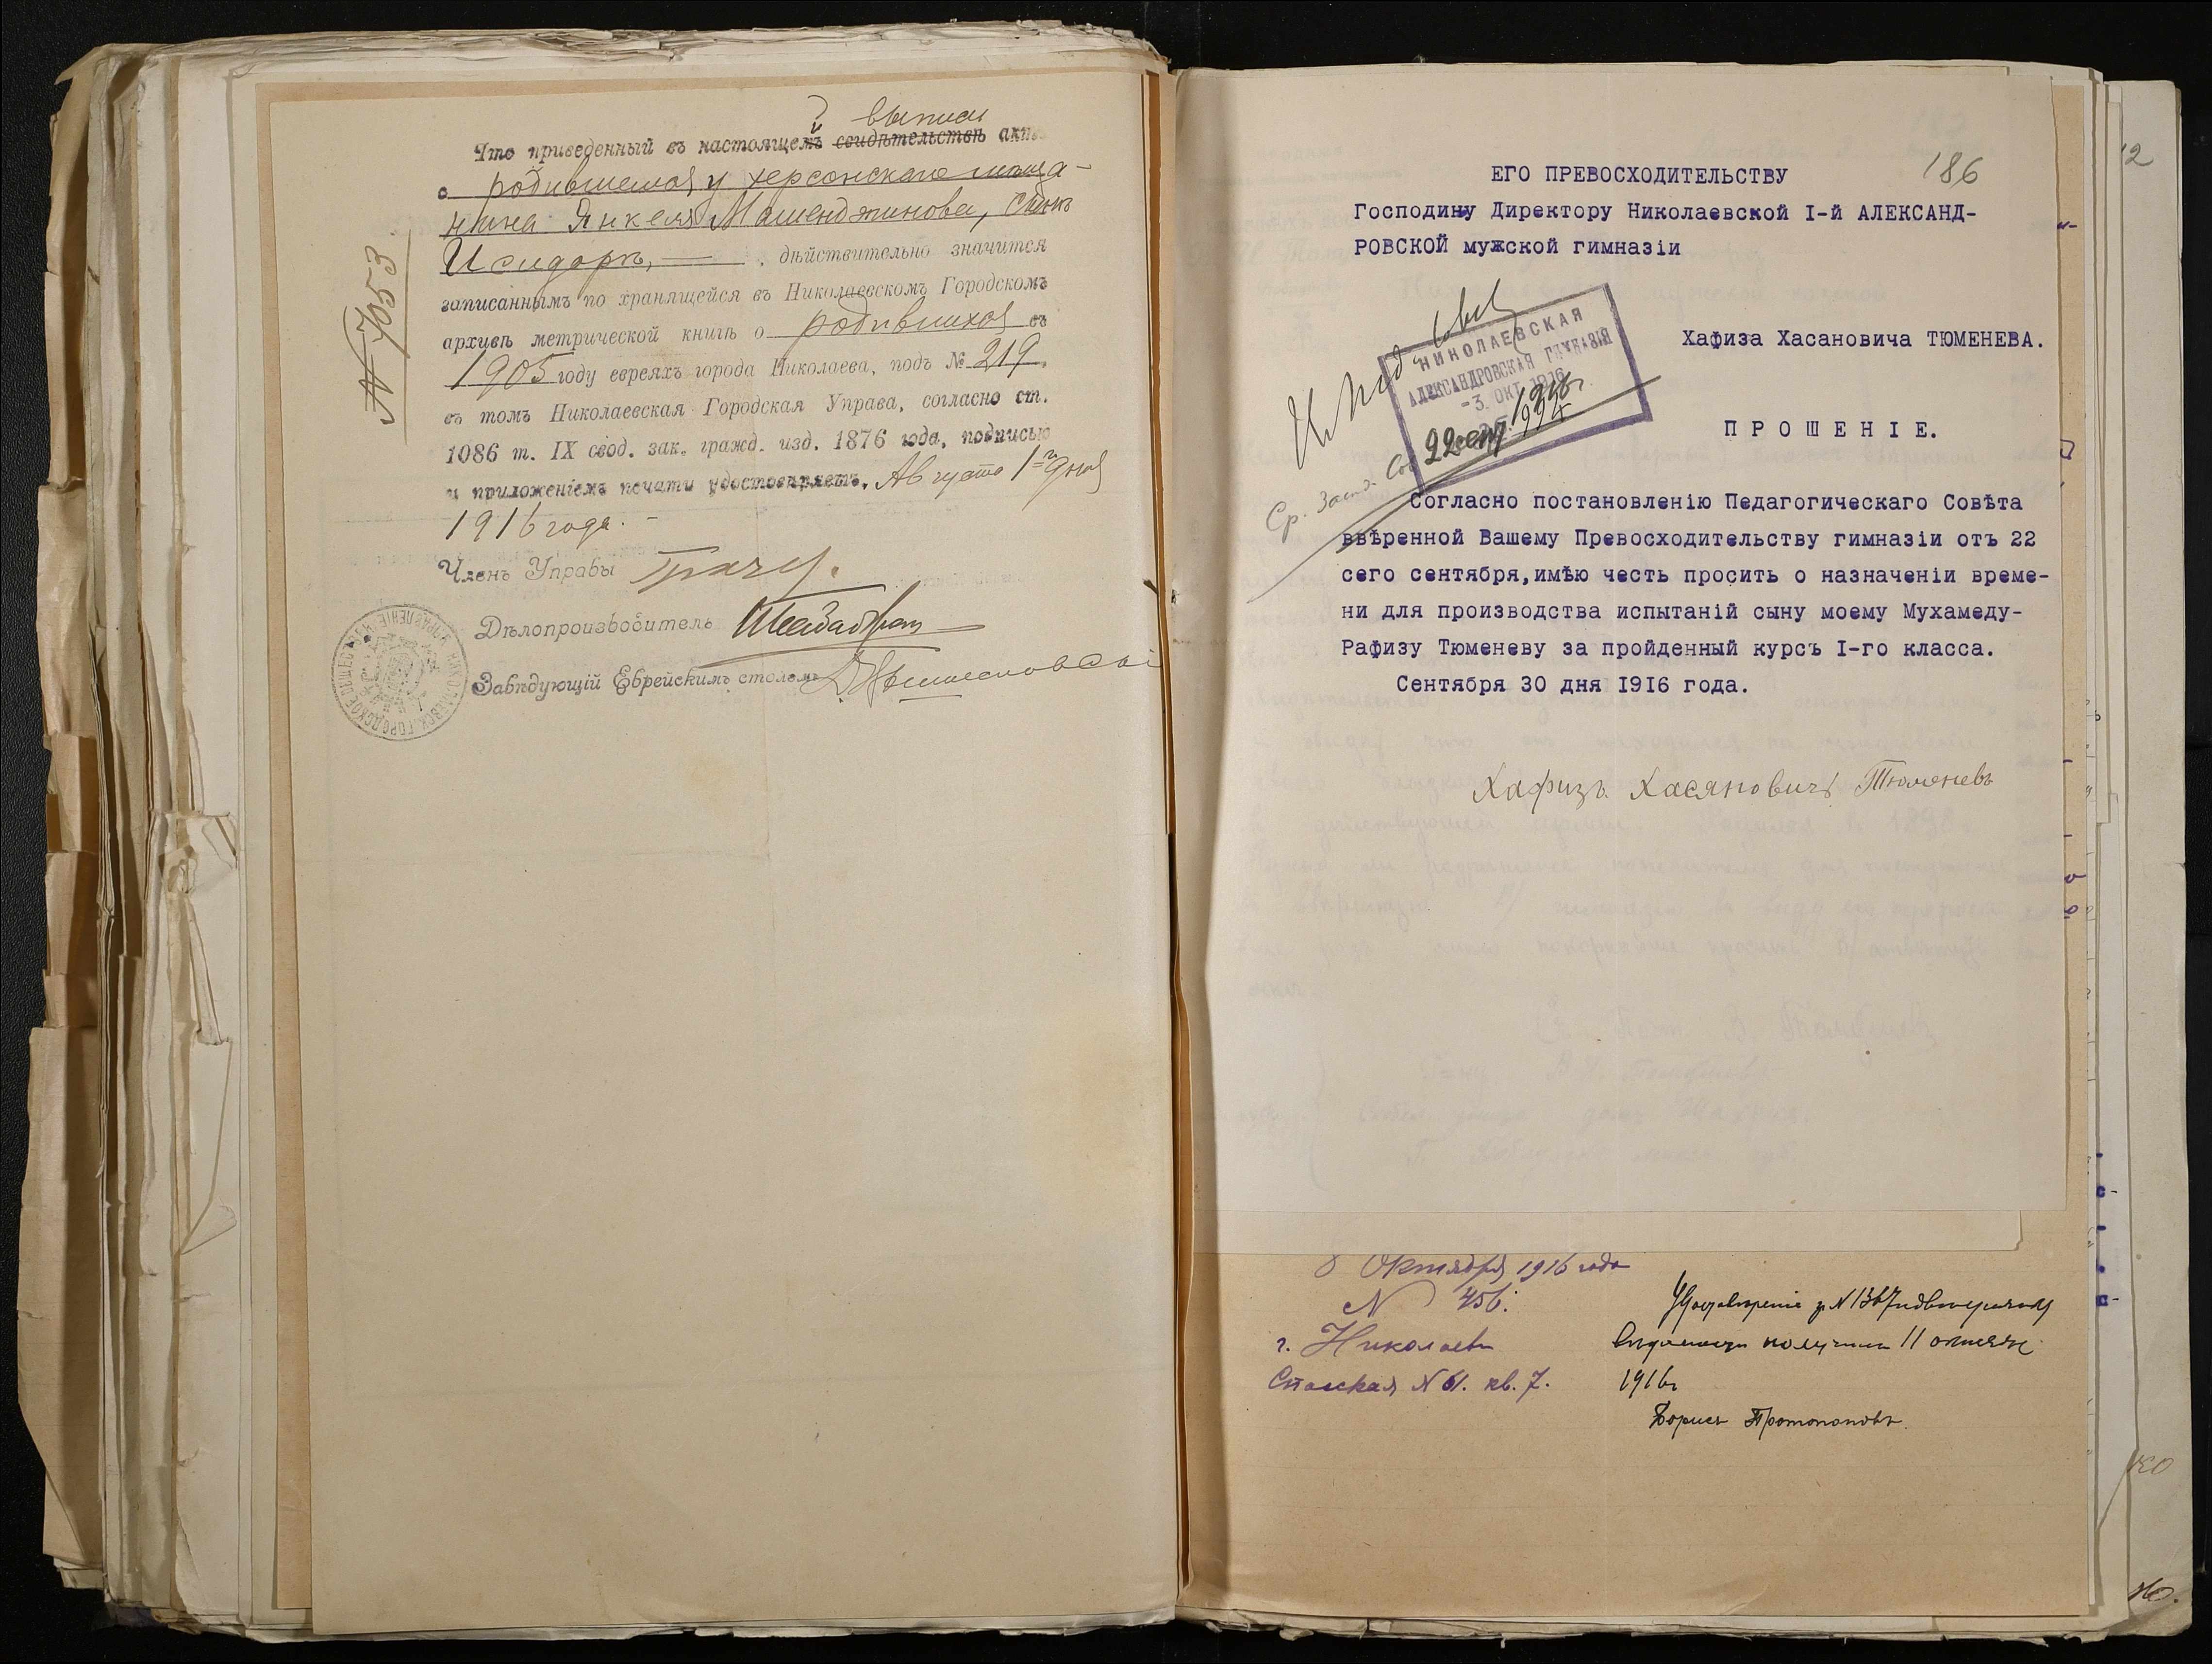 выписи
Что приведенный въ настоящей свидѣтельствѣ актъ
о родившемся у херсонскаго мѣща-
нина Янкеля Машенджинова, сынѣ
Исидорѣ, дѣйствительно значится
записаннымъ по хранящейся въ Николаевскомъ Городскомъ
архивѣ метрической книгѣ о родившихся въ
1905 году евреяхъ города Николаева, подъ № 219,
въ томъ Николаевская Городская Управа, согласно ст.
1086 т. IX свод. зак. гражд. изд. 1876 года, подписью
и приложеніемъ печати удостовѣряетъ. Августа 1-го дня
1916 года.
Членъ Управы
Дѣлопроизводитель
Завѣдующій Еврейскимъ столомъ
№ 7053
186
ЕГО ПРЕВОСХОДИТЕЛЬСТВУ
Господину Директору Николаевской I-й АЛЕКСАНД-
РОВСКОЙ мужской гимназіи
Хафиза Хасановича ТЮМЕНЕВА.
НИКОЛАЕВСКАЯ
АЛЕКСАНДРОВСКАЯ ГИМНАЗІЯ
-3. ОКТ. 1916
Ср. Засѣд. Сов. 22 сент 1916 г.
П Р О Ш Е Н І Е.
Согласно постановленію Педагогическаго Совѣта
ввѣренной Вашему Превосходительству гимназіи отъ 22
сего сентября,имѣю честь просить о назначеніи време-
ни для производства испытаній сыну моему Мухамеду-
Рафизу Тюменеву за пройденный курсъ I-го класса.
Сентября 30 дня 1916 года.
Хафизъ Хасяновичъ Тюменевъ
8 Октября 1916 года
N 456.
г. Николаевъ
Спасская N 61. кв. 7.
Удостовѣреніе за N 1367 и
получилъ 11 октября
1916 г
Борисъ Протопоповъ
12